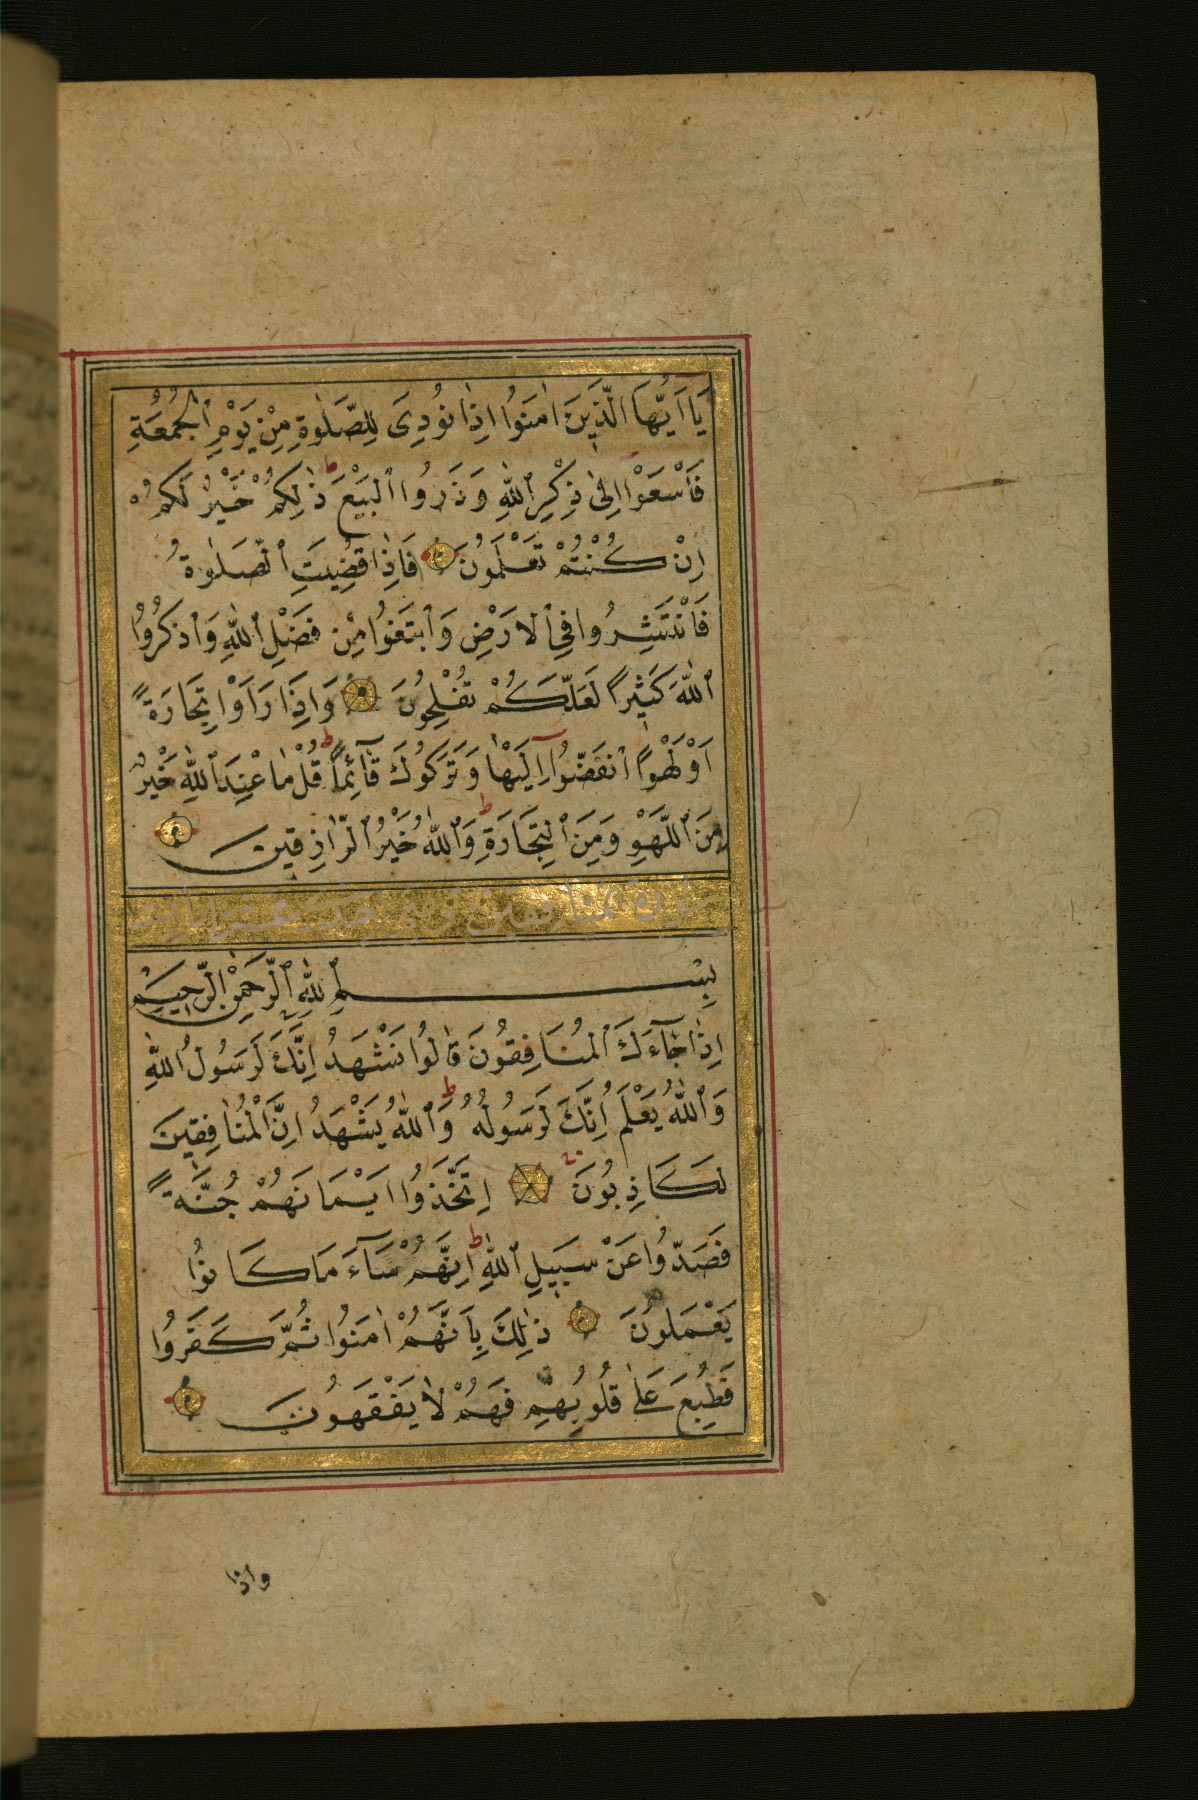 يَآ اَيُّهَا الَّذٖينَ اٰمَنُوا اِذَا نُودِىَ لِلصَّلٰوةِ مِنْ يَوْمِ ٱلْجُمُعَةِ
فَاَسْعَوْا اِلىٰ ذِكْرِ ٱللّٰهِ وَذَرُوا ٱلْبَيْعَ ط ذٰلِكُمْ خَيْرٌ لَكُمْ
اِنْ كُنْتُمْ تَعْلَمُونَ فَاِذَا قُضِيَتِ ٱلصَّلٰوةُ
فَانْتَشِرُوا فِى ٱلْارَضِ وَٱبْتَغُوا مِنْ فَضْلِ ٱللّٰهِ وَٱذْكُرُوا
ٱللّٰهَ كَثٖيرًا لَعَلَّكُمْ تُفْلِحُونَ وَاِذَا رَاَوْا تِجَارَةً
اَوْ لَهْوًا ٱنْفَضُّوٓا اِلَيْهَا وَتَرَكُوكَ قَآئِمًا ط قُلْ مَا عِنْدَ ٱللّٰهِ خَيْرٌ
مِنَ ٱللَّهْوِ وَمِنَ ٱلتِّجَارَةِ ط وَٱللّٰهُ خَيْرُ ٱلرَّازِقٖينَ
سورة المنافقين وهي احدى عشر ايات
بِسْمِ ٱللّٰهِ ٱلرَّحْمٰنِ ٱلرَّحٖيمِ
اِذَا جَآءَكَ ٱلْمُنَافِقُونَ قَالُوا نَشْهَدُ اِنَّكَ لَرَسُولُ ٱللّٰهِ
وَٱللّٰهُ يَعْلَمُ اِنَّكَ لَرَسُولُهُ ط وَٱللّٰهُ يَشْهَدُ اِنَّ ٱلْمُنَافِقٖينَ
لَكَاذِبُونَ اِتَّخَذُوا اَيْمَانَهُمْ جُنَّةً
فَصَدُّوا عَنْ سَبٖيلِ ٱللّٰهِ ط اِنَّهُمْ سَآءَ مَا كَانُوا
يَعْمَلُونَ ذٰلِكَ بِاَنَّهُمْ اٰمَنُوا ثُمَّ كَفَرُوا
فَطُبِعَ عَلىٰ قُلُوبِهِمْ فَهُمْ لَا يَفْقَهُونَ
واذا